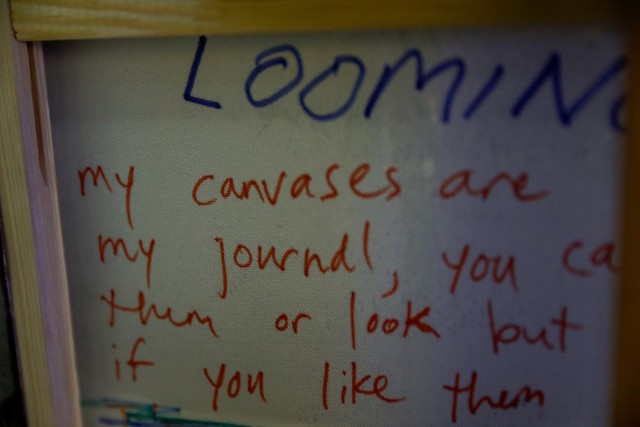 LOOMING
my canvases are
my journal, you ca
them or look but
if you like them